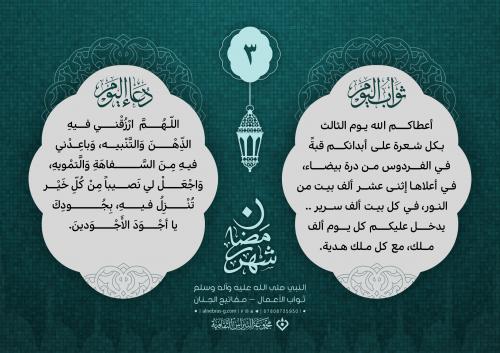 ٣
ثواب اليوم
أعطاكم الله يوم الثالث
بكل شعرة على أبدانكم قبةً
في الفردوس من درة بيضاء،
في أعلاها إثنى عشر ألف بيت من
النور، في كل بيت ألف سرير ..
يدخل عليكم كل يوم ألف
ملك، مع كل ملك هدية.
دعاء اليوم
اللّهُمَّ ارْزُقْني فيهِ
الذِّهْنَ وَالتَّنْبيه، وَباعِدْني
فيهِ مِنَ السَّفاهَةِ وَالتَّمْويهِ،
وَاجْعَلْ لي نَصيباً مِنْ كُلِّ خَيْر
تُنْزِلُ فيهِ، بِجُودِكَ
يا أجْوَدَ الأَجْوَدينَ.
شهر رمضان
النبي صلى الله عليه وآله وسلم
ثواب الأعمال - مفاتيح الجنان
alnebras-g.com
07808735950
مجموعة النبراس الثقافية